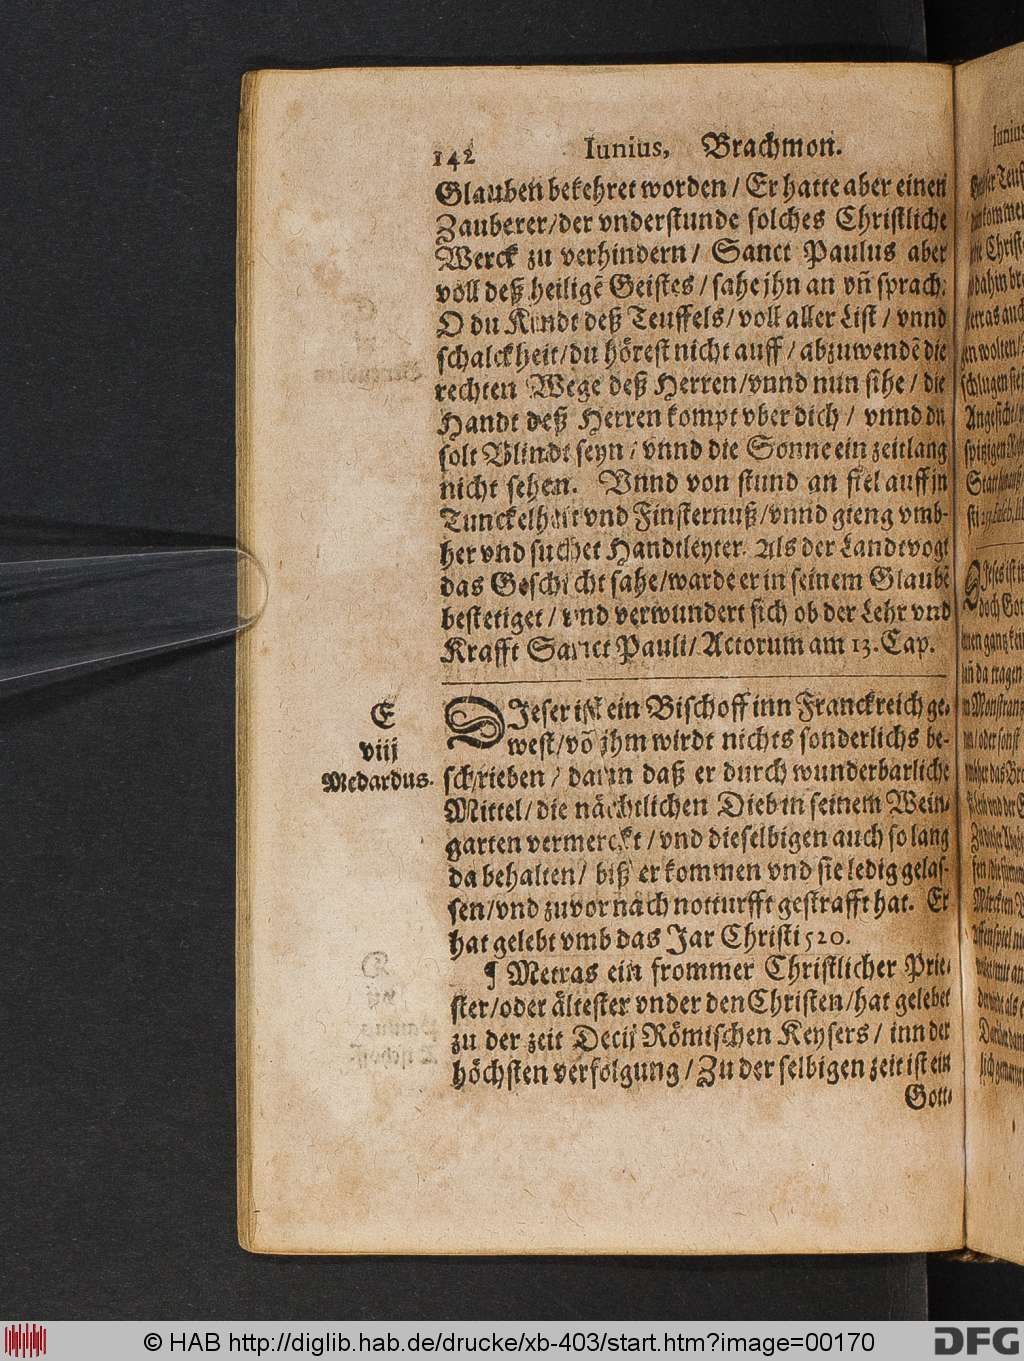 142 Iunius, Brachmon.
Glauben bekehret worden / Er hatte aber einen
Zauberer/der vnderstunde solches Christliche
Werck zu verhindern/ Sanct Paulus aber
voll deß heiligẽ Geistes / sahe jhn an vñ sprach:
O du Kindt deß Teuffels/ voll aller List / vnnd
schalckheit/du hörest nicht auff / abzuwendẽ die
rechten Wege deß Herren/vnnd nun sihe / die
Handt deß Herren kompt vber dich / vnnd du
solt Blindt seyn / vnnd die Sonne ein zeitlang
nicht sehen. Vnnd von stund an fiel auff jn
Tunckelheit vnd Finsternuß/vnnd gieng vmb-
her vnd suchet Handtleyter. Als der Landtvogt
das Geschicht sahe/warde er in seinem Glaubẽ
bestetiget / vnd verwundert sich ob der Lehr vnd
Krafft Sanct Pauli/ Actorum am 13. Cap.
E
viij
Medardus.
DIeser ist ein Bischoff inn Franckreich ge-
west/võ jhm wirdt nichts sonderlichs be-
schrieben / dann daß er durch wunderbarliche
Mittel/ die nächtlichen Dieb in seinem Wein-
garten vermerckt / vnd dieselbigen auch so lang
da behalten/ biß er kommen vnd sie ledig gelas-
sen/vnd zuvor nach notturfft gestrafft hat. Er
hat gelebt vmb das Jar Christi 520.
¶ Metras ein frommer Christlicher Prie-
ster/oder ältester vnder den Christen/hat gelebet
zu der zeit Decij Römischen Keysers / inn der
höchsten verfolgung / Zu der selbigen zeit ist ein
Gott-
© HAB http://diglib.hab.de/drucke/xb-403/start.htm?image=00170
DFG